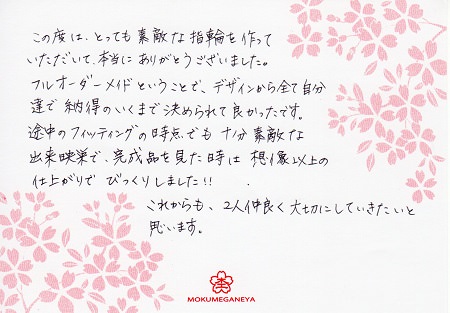 この度は、とっても素敵な指輪を作って
いただいて、本当にありがとうございました。
フルオーダーメイドということで、デザインから全て自分
達で納得のいくまで決められて良かったです。
途中のフィッティングの時点でも十分素敵な
出来映巣で、完成品を見た時は想像以上の
仕上がりでびっくりしました!!
これからも、2人仲良く大切にしていきたいと
思います。
MOKUMEGANEYA